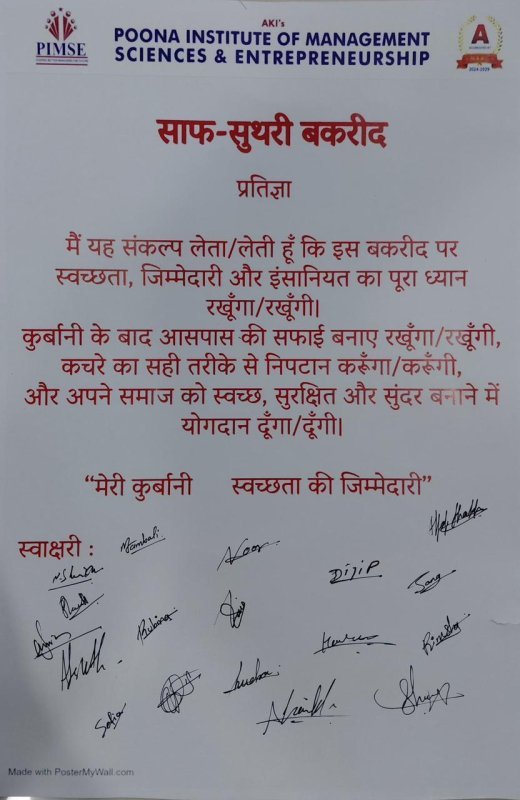 PIMSE
AKI's
POONA INSTITUTE OF MANAGEMENT
SCIENCES & ENTREPRENEURSHIP
A
2024-2029
साफ-सुथरी बकरीद
प्रतिज्ञा
मैं यह संकल्प लेता/लेती हूँ कि इस बकरीद पर
स्वच्छता, जिम्मेदारी और इंसानियत का पूरा ध्यान
रखूँगा/रखूँगी।
कुर्बानी के बाद आसपास की सफाई बनाए रखूँगा/रखूँगी,
कचरे का सही तरीके से निपटान करूँगा/करूँगी,
और अपने समाज को स्वच्छ, सुरक्षित और सुंदर बनाने में
योगदान दूँगा/दूँगी।
“मेरी कुर्बानी स्वच्छता की जिम्मेदारी”
स्वाक्षरी :
Noor
Rubina
Made with PosterMyWall.com